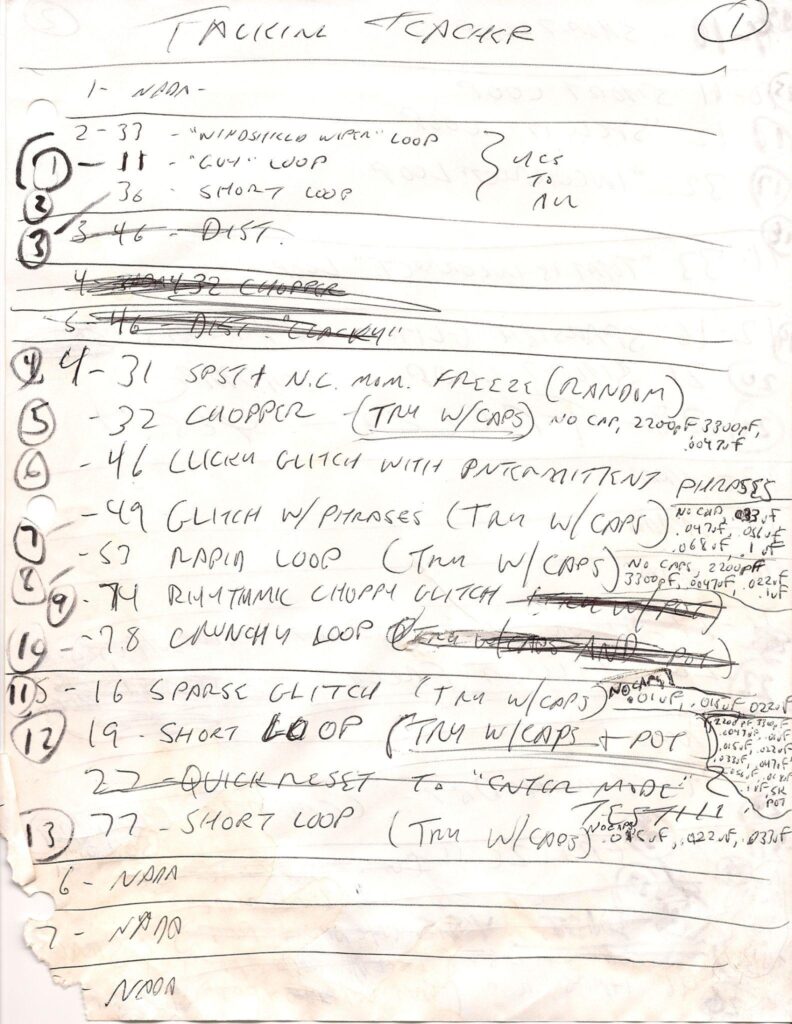 TALKING TEACHER ①
1- NADA-
2-33 - "WINDSHIELD WIPER" LOOP
① - 11 - "GUY" LOOP } YES TO ALL
② 36 - SHORT LOOP
③ 3-46 - DIST.
4 432 CHOPPER
5-46 - DIST. "CLACKY"
④ 4-31 SPST + N.C. MOM. FREEZE (RANDOM)
⑤ -32 CHOPPER - (TRY W/CAPS) NO CAP, 2200pF 3300pF, .0047uF
⑥ -46 CLICKY GLITCH WITH INTERMITTENT PHRASES
⑦ -49 GLITCH W/PHRASES (TRY W/CAPS) NO CAP, .033uF .047uF, .056uF .068uF, .1uF
⑧ -53 RAPID LOOP (TRY W/CAPS) NO CAPS, 2200pF 3300pF, .0047uF, .022uF .1uF
⑨ -74 RHYTHMIC CHOPPY GLITCH (TRY W/POT)
⑩ -78 CRUNCHY LOOP (TRY W/CAPS AND POT)
⑪ 5 - 16 SPARSE GLITCH (TRY W/CAPS) NO CAPS .01uF, .015uF, .022uF
⑫ 19 - SHORT LOOP (TRY W/CAPS + POT 2200pF, 3300pF, .0047uF, .01uF .015uF, .022uF .033uF, .047uF .056uF, .068uF .1uF 5K POT
27 - QUICK RESET TO "ENTER MODE"
⑬ 77 - SHORT LOOP (TRY W/CAPS) NO CAPS .015uF, .022uF, .033uF
6 - NADA
7 - NADA
- NADA